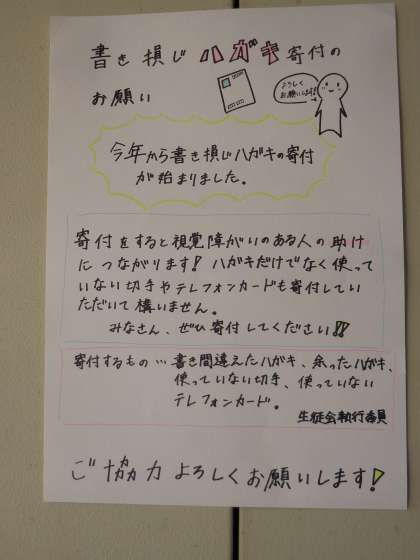 書き損じハガキ寄付の
お願い
よろしく
お願いします!
今年から書き損じハガキの寄付
が始まりました。
寄付をすると視覚障がいのある人の助け
につながります!ハガキだけでなく使って
いない切手やテレフォンカードも寄付してい
ただいて構いません。
みなさん、ぜひ寄付してください!!
寄付するもの…書き間違えたハガキ、余ったハガキ、
使っていない切手、使っていない
テレフォンカード。
生徒会執行委員
ご協力よろしくお願いします!